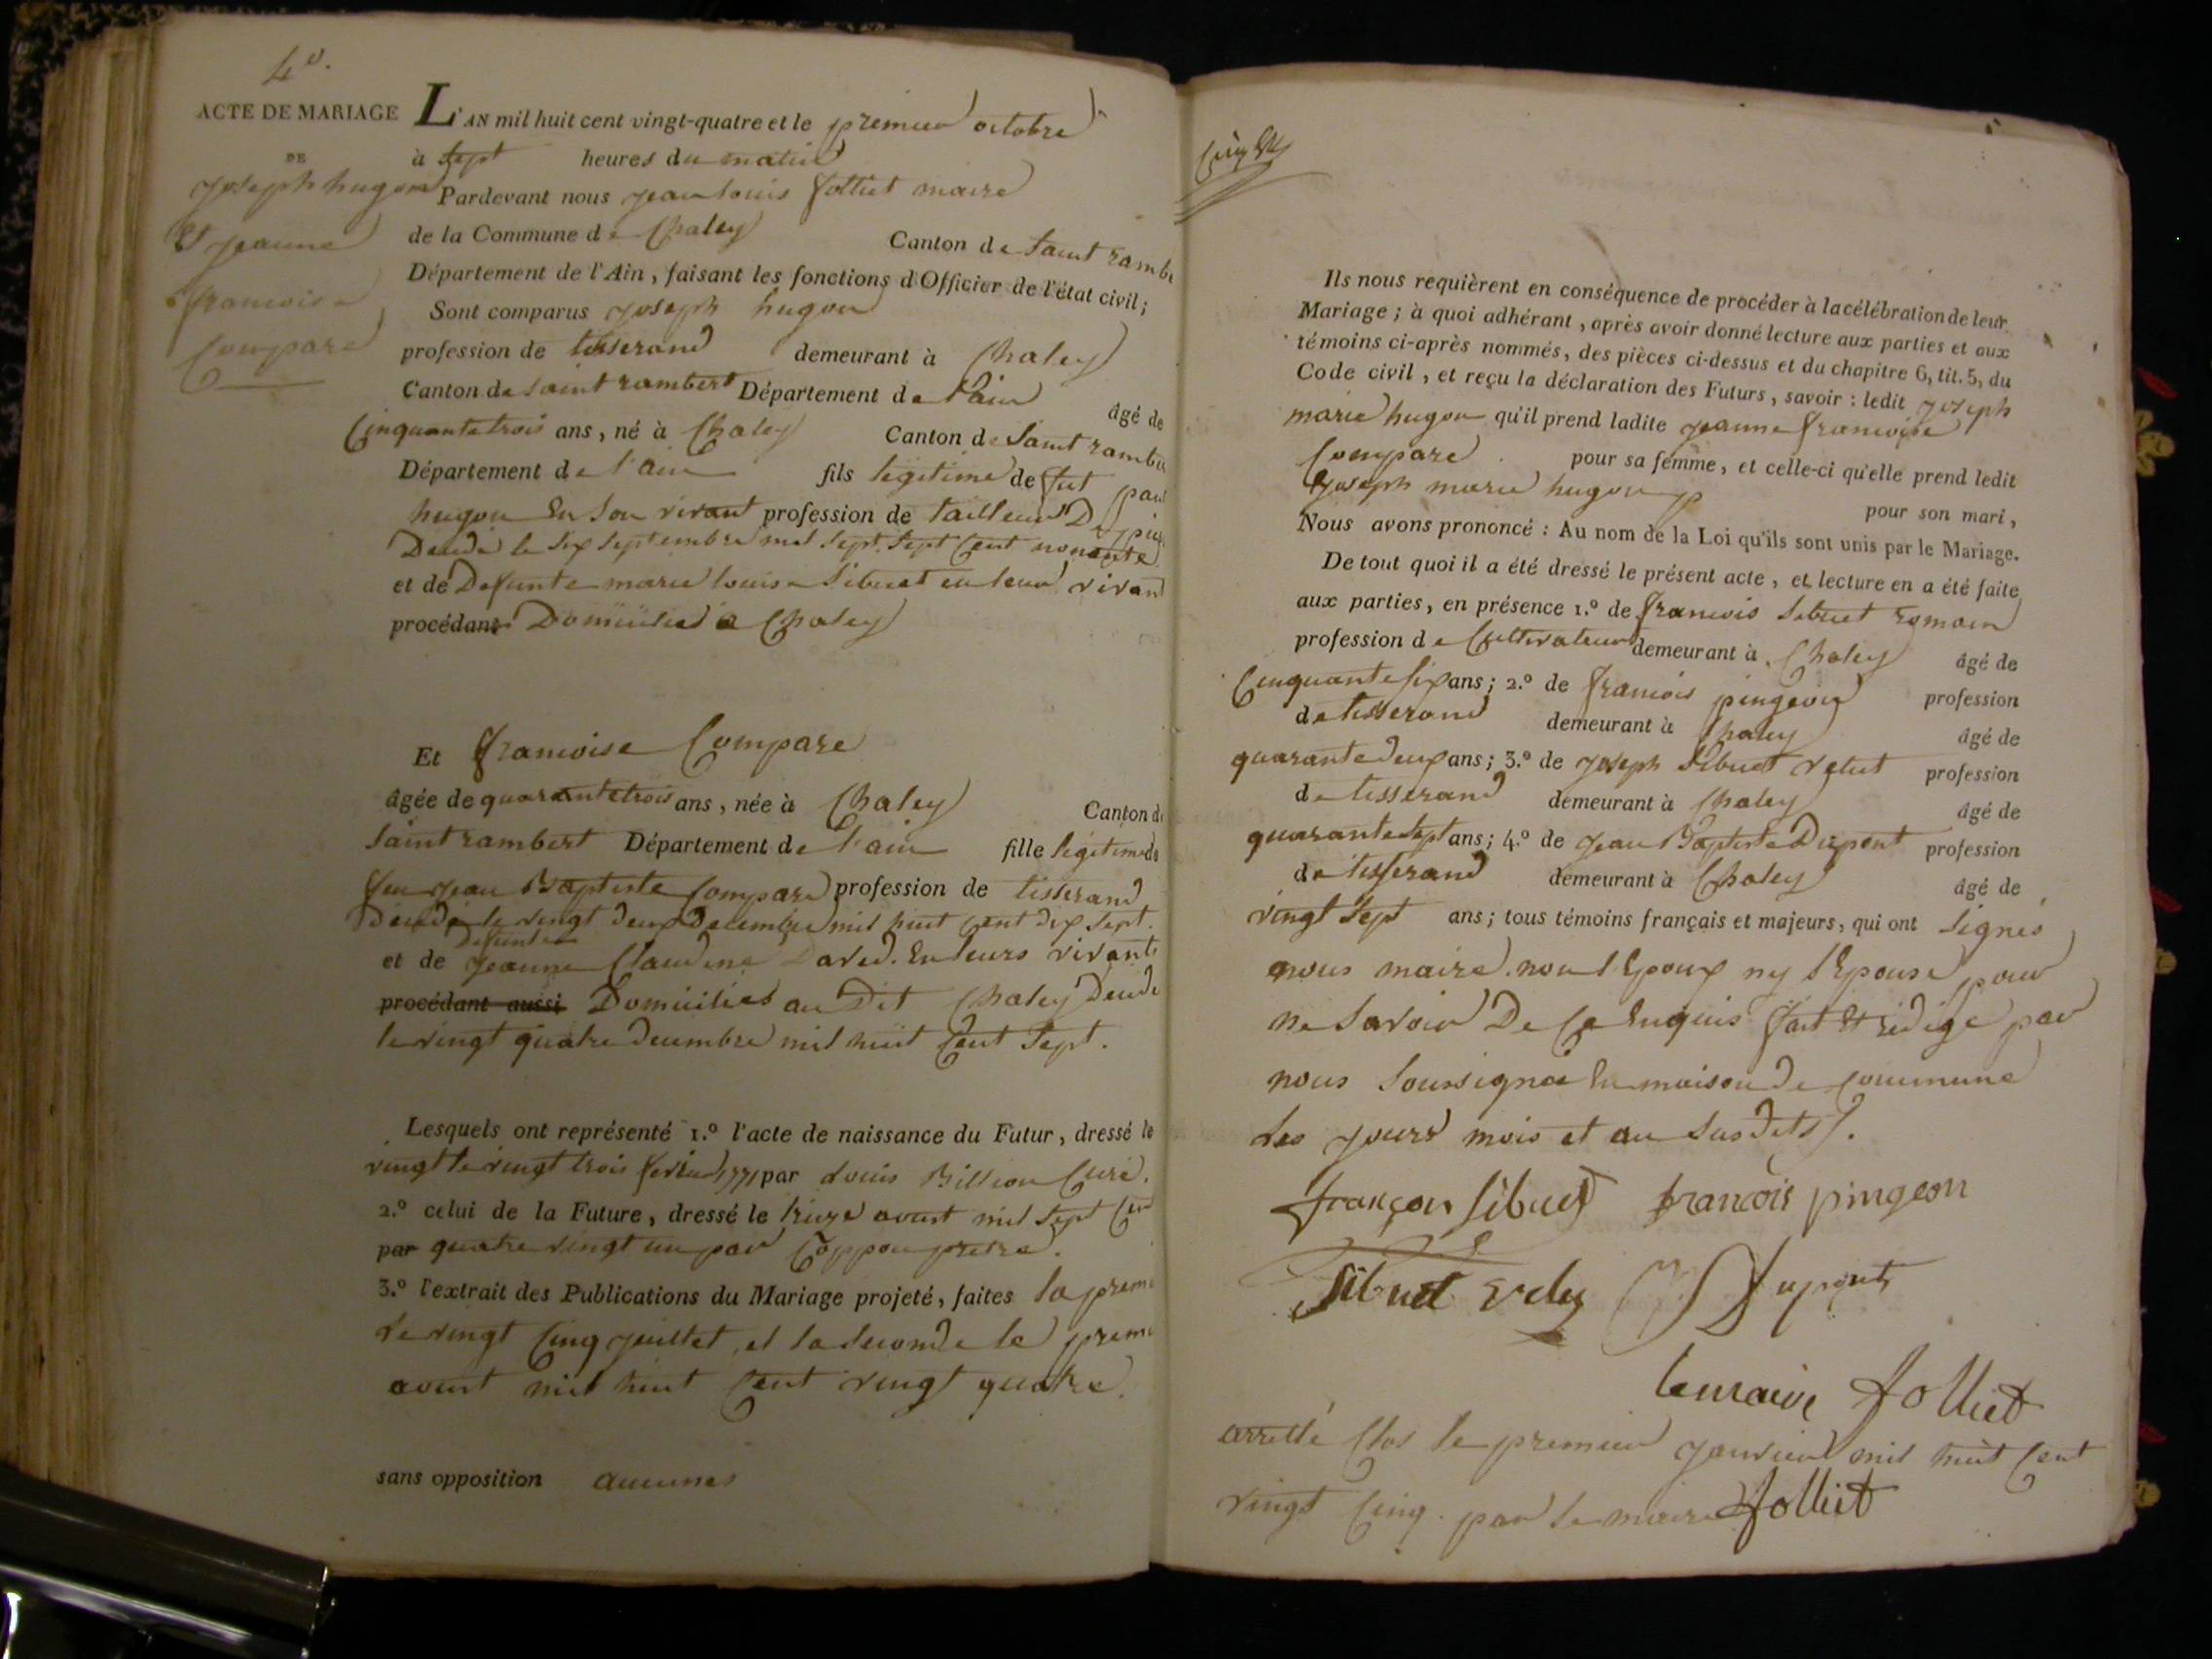 4e.
ACTE DE MARIAGE
DE
joseph hugon
Et jeanne
francoise
Compare
L'AN mil huit cent vingt-quatre et le premier octobre
à sept heures du matin
Pardevant nous jean louis folliet maire
de la Commune de Chaley Canton de saint rambe
Département de l'Ain, faisant les fonctions d'Officier de l'état civil;
Sont comparus joseph hugon
profession de tisserand demeurant à Chaley
Canton de saint rambert Département de l'ain âgé de
Cinquante trois ans, né à Chaley Canton de saint rambe
Département de l'ain fils légitime de fut
hugon En son vivant profession de tailleur
Decede le six septembre mil sept sept Cent nonente
et de Defunte marie louise sibuet en leur vivant
procédant Domicilies a Chaley
Et francoise Compare
âgée de quarante trois ans, née à Chaley Canton de
saint rambert Département de l'ain fille legitime de
feu jean Baptiste Compare profession de tisserand
Decede le vingt deux Decembre mil huit Cent dix sept.
Defunte
et de jeanne Claudine Daved. En leurs vivants
procédant aussi Domicilies au Dit Chaley Decede
le vingt quatre Decembre mil huit Cent sept.
Lesquels ont représenté 1.º l'acte de naissance du Futur, dressé le
vingt le vingt trois fevrier 1771 par Louis Billion Curé.
2.º celui de la Future, dressé le treize avout mil sept Cen
par quatre vingt un par Coppon pretre.
3.º l'extrait des Publications du Mariage projeté, faites la prem
Le vingt Cinq juillet, et la seconde le prem
avout mil huit Cent vingt quatre.
sans opposition aucunes
Ils nous requièrent en conséquence de procéder à la célébration de leur
Mariage; à quoi adhérant, après avoir donné lecture aux parties et aux
témoins ci-après nommés, des pièces ci-dessus et du chapitre 6, tit. 5, du
Code civil, et reçu la déclaration des Futurs, savoir: ledit joseph
marie hugon qu'il prend ladite jeanne francoise
Compare pour sa femme, et celle-ci qu'elle prend ledit
joseph marie hugon pour son mari,
Nous avons prononcé: Au nom de la Loi qu'ils sont unis par le Mariage.
De tout quoi il a été dressé le présent acte, et lecture en a été faite
aux parties, en présence 1.º de francois sibuet romain
profession de Cultivateur demeurant à Chaley âgé de
Cinquante six ans; 2.º de francois pingeon profession
de tisserand demeurant à Chaley âgé de
quarante deux ans; 3.º de joseph sibuet velut profession
de tisserand demeurant à Chaley âgé de
quarante sept ans; 4.º de jean Baptiste Dupont profession
de tisserand demeurant à Chaley âgé de
vingt sept ans; tous témoins français et majeurs, qui ont signés
nous maire. non l'Epoux ny l'Epouse pour
ne savoir De Ce Enquis fait Et rédigé par
nous soussigné En maison De Commune
Les jours mois et an susdits.
françois sibuet francois pingeon
sibuet Dupont
le maire folliet
arretté Clos le premier janvier mil huit Cent
vingt Cinq. par le maire folliet